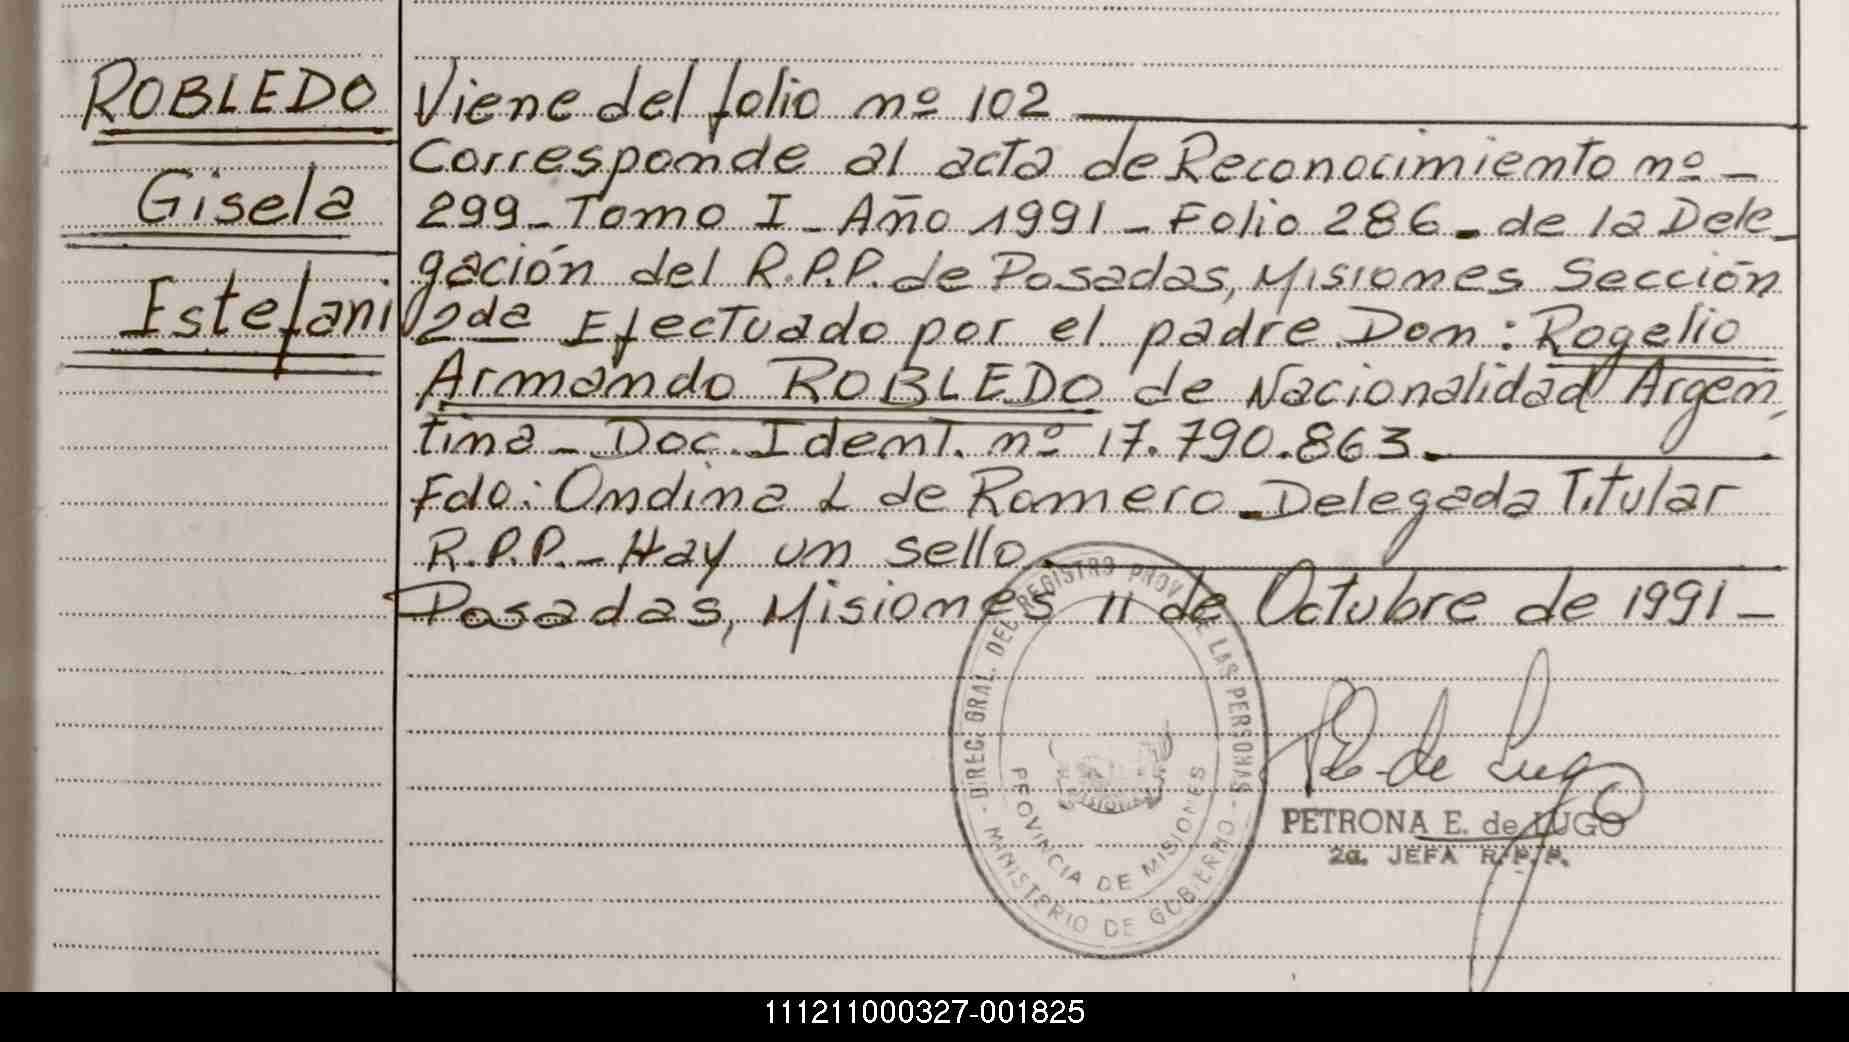 ROBLEDO
Gisela
Estefani
Viene del folio nº 102
Corresponde al acta de Reconocimiento nº -
299 - Tomo I - Año 1991 - Folio 286 - de la Dele-
gación del R.P.P. de Posadas, Misiones Sección
2da Efectuado por el padre Don: Rogelio
Armando ROBLEDO de Nacionalidad Argen-
tina - Doc. Ident. nº 17.790.863.
Fdo: Ondina L de Romero - Delegada Titular
R.P.P. - Hay un sello.
Posadas, Misiones 11 de Octubre de 1991 -
- DIREC. GRAL. DEL REGISTRO PROV. DE LAS PERSONAS -
MINISTERIO DE GOBIERNO
PROVINCIA DE MISIONES
MISIONES
PE de Lugo
PETRONA E. de LUGO
2a. JEFA R.P.P.
111211000327-001825